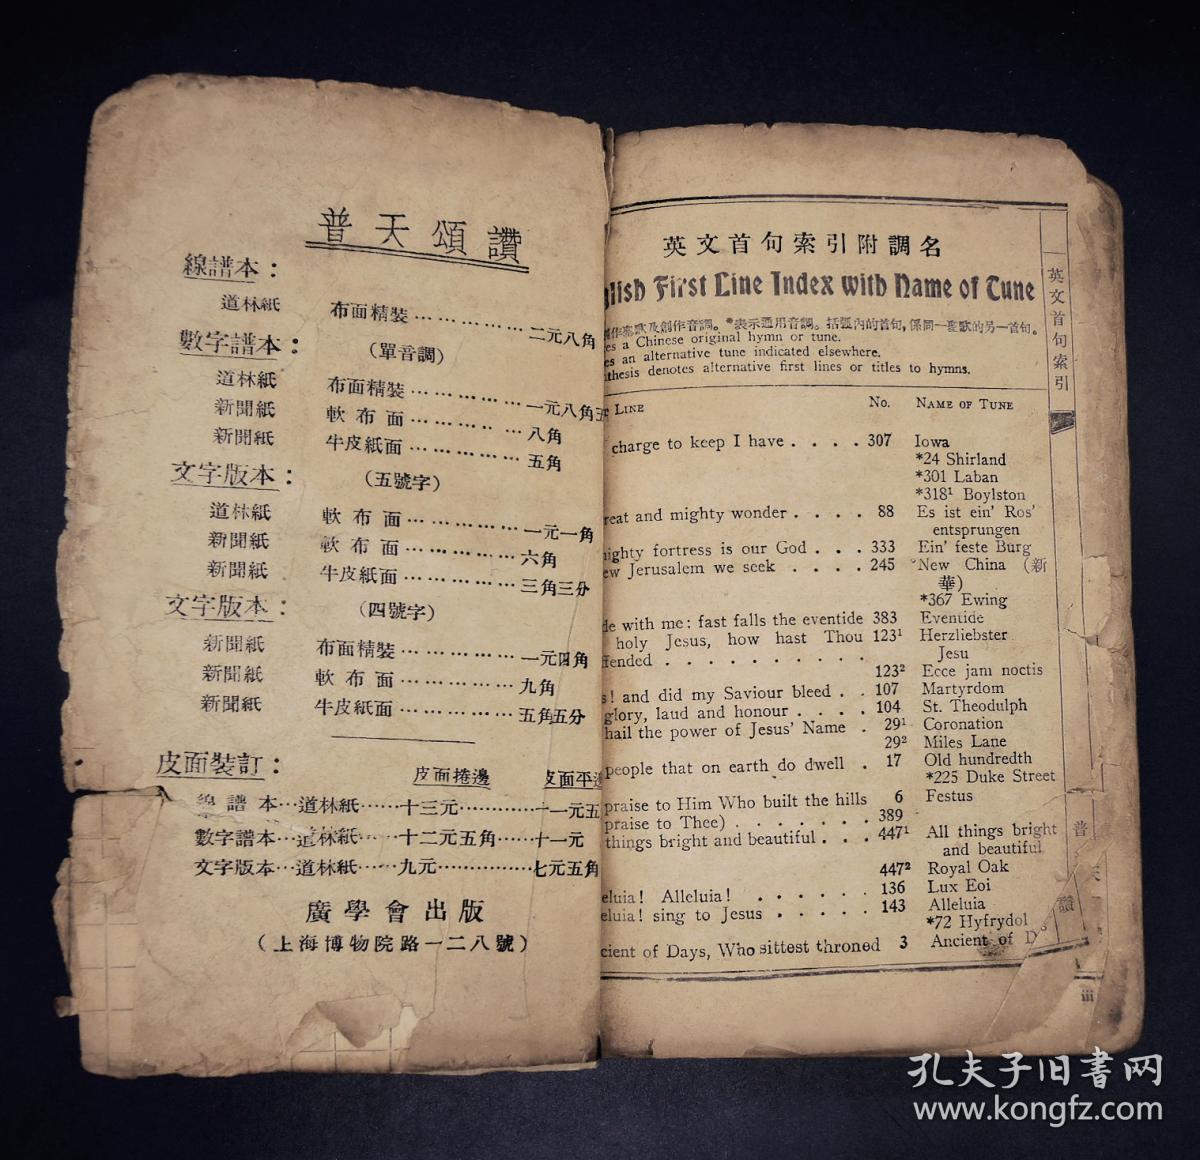 普天頌讚
線譜本：
道林紙 布面精裝 …………… 二元八角
數字譜本： （單音調）
道林紙 布面精裝 …………… 一元八角五
新聞紙 軟布面 …………… 八角
新聞紙 牛皮紙面 …………… 五角
文字版本： （五號字）
道林紙 軟布面 …………… 一元一角
新聞紙 軟布面 …………… 六角
新聞紙 牛皮紙面 …………… 三角三分
文字版本： （四號字）
新聞紙 布面精裝 …………… 一元四角
新聞紙 軟布面 …………… 九角
新聞紙 牛皮紙面 …………… 五角五分
皮面裝訂： 皮面捲邊 皮面平邊
線譜本…道林紙……十三元…………十一元五
數字譜本…道林紙……十二元五角……十一元
文字版本…道林紙……九元……………七元五角
廣學會出版
（上海博物院路一二八號）
英文首句索引附調名
glish First Line Index with Name of Tune
作聖歌及創作音調。*表示通用音調。括弧內的首句，係同一聖歌的另一首句。
es a Chinese original hymn or tune.
es an alternative tune indicated elsewhere.
nthesis denotes alternative first lines or titles to hymns.
Line No. Name of Tune
charge to keep I have . . . . 307 Iowa
*24 Shirland
*301 Laban
*318¹ Boylston
reat and mighty wonder . . . . 88 Es ist ein' Ros'
entsprungen
ighty fortress is our God . . . 333 Ein' feste Burg
ew Jerusalem we seek . . . . 245 °New China (新
華)
*367 Ewing
de with me: fast falls the eventide 383 Eventide
holy Jesus, how hast Thou 123¹ Herzliebster
ffended . . . . . . . . . . Jesu
123² Ecce jam noctis
s! and did my Saviour bleed . . 107 Martyrdom
glory, laud and honour . . . . 104 St. Theodulph
hail the power of Jesus' Name . 29¹ Coronation
29² Miles Lane
people that on earth do dwell . 17 Old hundredth
*225 Duke Street
praise to Him Who built the hills 6 Festus
praise to Thee) . . . . . . . 389
things bright and beautiful . . . 447¹ All things bright
and beautiful
447² Royal Oak
eluia! Alleluia! . . . . . . 136 Lux Eoi
eluia! sing to Jesus . . . . . 143 Alleluia
*72 Hyfrydol
cient of Days, Who sittest throned 3 Ancient of D
英文首句索引
普
讚
iii
孔夫子旧书网
www.kongfz.com